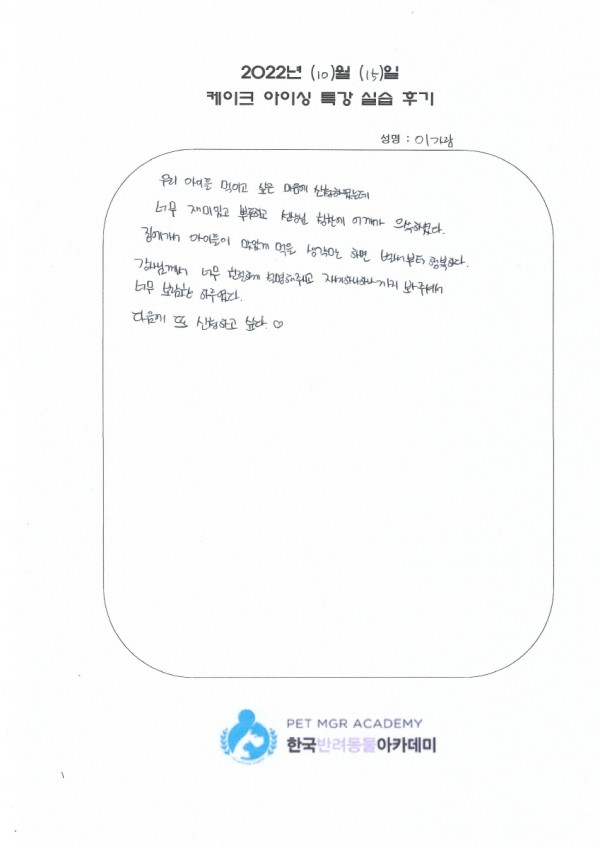 2022년 (10)월 (15)일
케이크 아이싱 특강 실습 후기
성명 : 이가람
우리 아이들 먹이고 싶은 마음에 신청하였는데
너무 재미있고 뿌듯하고 선생님 칭찬에 어깨가 으쓱하였다.
집에가서 아이들이 맛있게 먹을 생각만 하면 벌써부터 행복하다.
강사님께서 너무 친절하게 설명해주시고 하나하나까지 봐주셔서
너무 보람찬 하루였다.
다음에 또 신청하고 싶다. ♡
PET MGR ACADEMY
한국반려동물아카데미